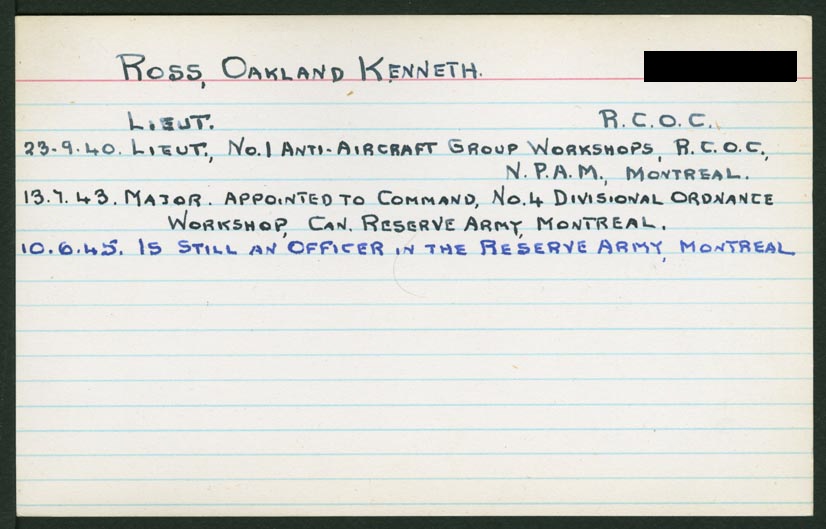 ROSS, OAKLAND KENNETH.
LIEUT. R.C.O.C.
23.9.40. LIEUT., NO.1 ANTI-AIRCRAFT GROUP WORKSHOPS, R.C.O.C.,
N.P.A.M., MONTREAL.
13.7.43. MAJOR. APPOINTED TO COMMAND, NO.4 DIVISIONAL ORDNANCE
WORKSHOP, CAN. RESERVE ARMY, MONTREAL.
10.6.45. IS STILL AN OFFICER IN THE RESERVE ARMY, MONTREAL